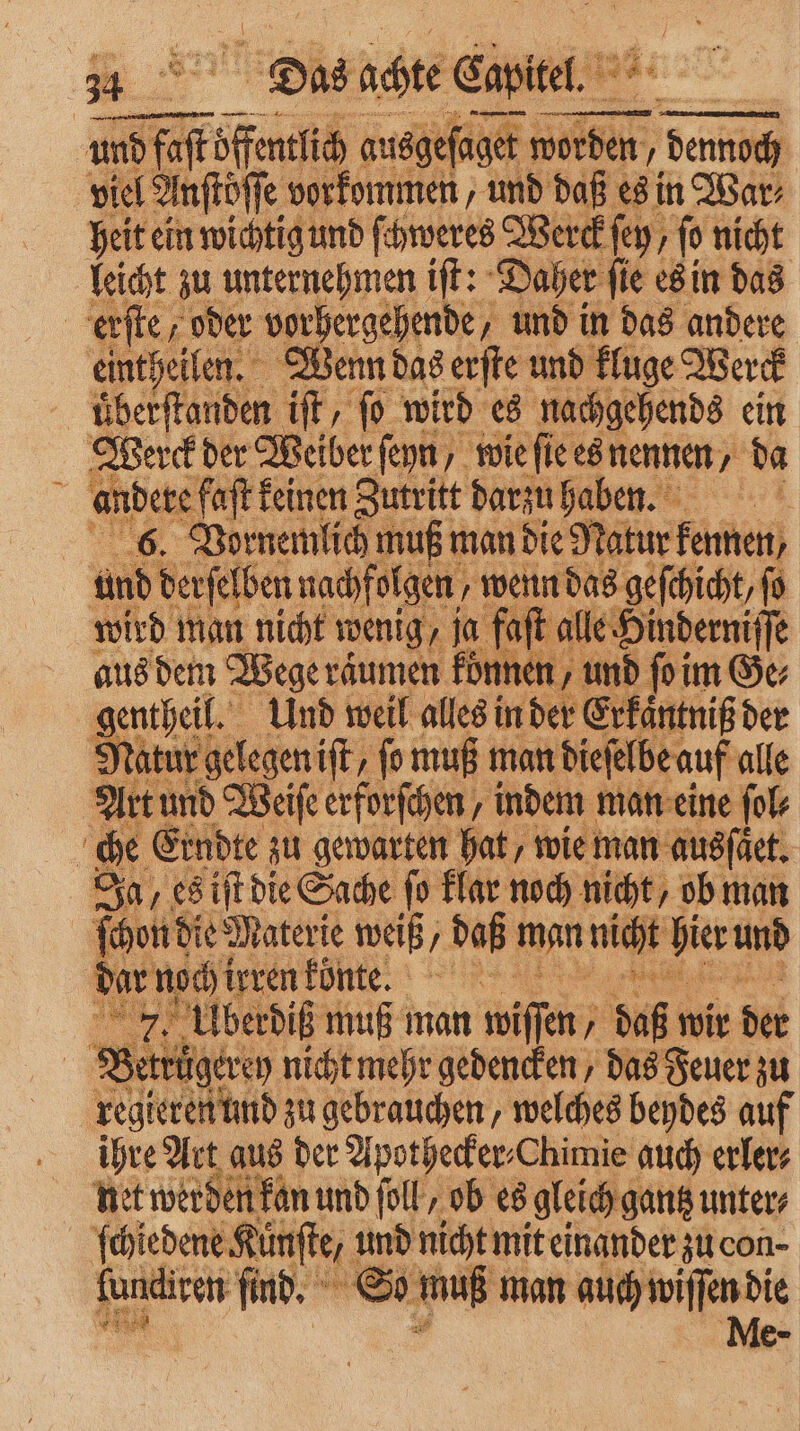 34 Das achte Capitel.
und faſt oͤffentlich ausgeſaget worden, dennoch
viel Anſtoͤſſe vorkommen, und daß es in War⸗
heit ein wichtig und ſchweres Werck ſey, ſo nicht
leicht zu unternehmen iſt: Daher ſie es in das
erſte, oder vorhergehende, und in das andere
eintheilen. Wenn das erſte und kluge Werck
uͤberſtanden iſt, ſo wird es nachgehends ein
Werck der Weiber ſeyn, wie ſie es nennen, da
andere faſt keinen Zutritt darzu haben.
6. Vornemlich muß man die Natur kennen,
und derſelben nachfolgen, wenn das geſchicht, ſo
wird man nicht wenig, ja faſt alle Hinderniſſe
aus dem Wege raͤumen koͤnnen, und ſo im Ge⸗
gentheil. Und weil alles in der Erkaͤntniß der
Natur gelegen iſt, ſo muß man dieſelbe auf alle
Art und Weiſe erforſchen, indem man eine ſol⸗
che Erndte zu gewarten hat, wie man ausſaͤet.
Ja, es iſt die Sache ſo klar noch nicht, ob man
ſchon die Materie weiß, daß man nicht hier und
dar noch irren koͤnte.
7. Uberdiß muß man wiſſen, daß wir der
Betruͤgerey nicht mehr gedencken, das Feuer zu
regieren und zu gebrauchen, welches beydes auf
ihre Art aus der Apothecker⸗Chimie auch erler⸗
net werden kan und ſoll, ob es gleich gantz unter⸗
ſchiedene Kuͤnſte, und nicht mit einander zu con-
fundiren ſind. So muß man auch wiſſen die
Me-